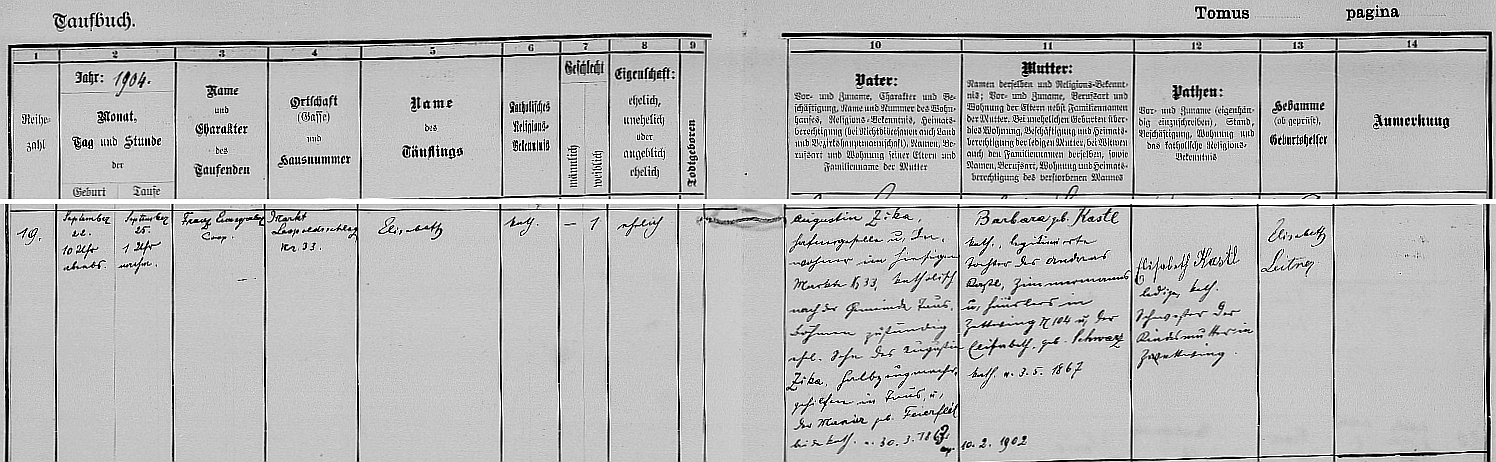 Taufbuch.
Tomus pagina
1 2 3 4 5 6 7 8 9 10 11 12 13 14
Reihe-
zahl
Jahr: 1904.
Monat,
Tag und Stunde
der
Geburt Taufe
Name
und
Charakter
des
Taufenden
Ortschaft
(Gasse)
und
Hausnummer
Name
des
Täuflings
Katholisches
Religions-
Bekenntnis
Geschlecht
männlich
weiblich
Eigenschaft:
ehelich,
unehelich
oder
angeblich
ehelich
Todtgeboren
Vater:
Vor- und Zuname, Charakter und Be-
schäftigung, Name und Nummer des Wohn-
hauses, Religions-Bekenntnis, Heimats-
berechtigung (bei Nichtdiöcesanen auch Land
und Bezirkshauptmannschaft), Namen, Be-
rufsart und Wohnung seiner Eltern und
Familienname der Mutter
Mutter:
Namen derselben und Religions-Bekennt-
nis; Vor- und Zuname, Berufsart und
Wohnung der Eltern nebst Familiennamen
der Mutter. Bei unehelichen Geburten über-
dies Wohnung, Beschäftigung und Heimats-
berechtigung der ledigen Mutter, bei Witwen
auch den Familiennamen derselben, sowie
Namen, Berufsart, Wohnung und Heimats-
berechtigung des verstorbenen Mannes
Pathen:
Vor- und Zuname (eigenhän-
dig einzuschreiben), Stand,
Beschäftigung, Wohnung und
das katholische Religions-
Bekenntnis
Hebamme
(ob geprüft),
Geburtshelfer
Anmerkung
19.
September
22.
10 Uhr
abends.
September
25.
1 Uhr
nachm.
Franz
Coop.
Markt
Leopoldschlag
Nr. 33.
Elisabeth
kath.
— 1
ehelich
Augustin Zika,
Hafnergeselle u. In-
wohner im hiesigen
Markte N 33, katholisch
nach der Gemeinde Taus,
Böhmen zuständig
ehl. Sohn des Augustin
Zika,
gehilfen in Taus, u.
der Maria geb. Feierfeil
beide kath. n. 30. 3. 1863
Barbara geb. Kastl
kath., legitimierte
Tochter des Andreas
Kastl, Zimmermanns
u. Häuslers in
Zettwing N 104 u. der
Elisabeth, geb. Schwarz
kath. n. 3. 5. 1867
10. 2. 1902
Elisabeth Kastl
ledig, kath.
Schwester der
Kindesmutter in
Zettwing.
Elisabeth
Leitner